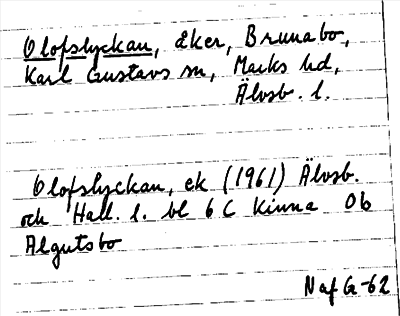 Olofslyckan, åker, Brunabo,
Karl Gustavs sn, Marks hd,
Älvsb. l.
Olofslyckan, ek (1961) Älvsb.
och Hall. l. bl 6 C Kinna Ob
Algutsbo
Naf G-62